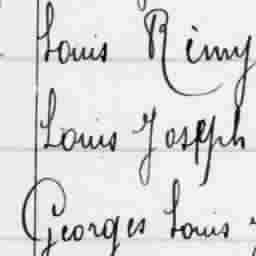 Louis Rémy
Louis Joseph
Georges Louis